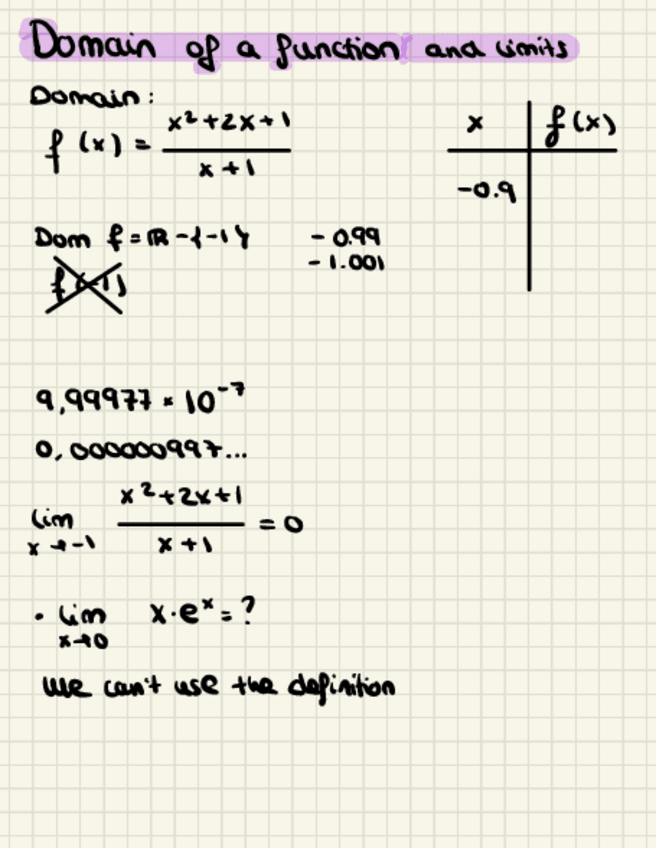 Domain of a function and limits
Domain:
f(x) = x²+2x+1 / x+1
x | f(x)
-0.9
Dom f = ℝ -{-1}
-0.99
-1.001
f(-1)
9,99977 * 10⁻⁷
0,000000997...
lim x→-1 x²+2x+1 / x+1 = 0
• lim x→0 x·eˣ = ?
We can't use the definition